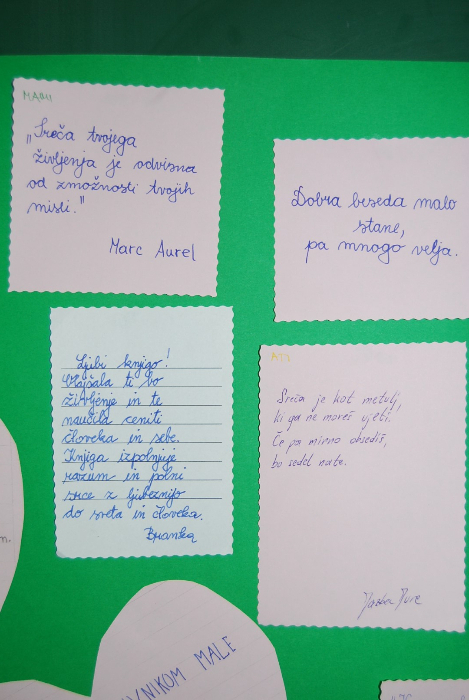 „Sreča tvojega
življenja je odvisna
od zmožnosti tvojih
misli."
Marc Aurel
Dobra beseda malo
stane,
pa mnogo velja.
Ljubi knjigo!
Olajšala ti bo
življenje in te
naučila ceniti
človeka in sebe.
Knjiga izpolnjuje
razum in polni
srce z ljubeznijo
do sveta in človeka.
Branka
Sreča je kot metulj,
ki ga ne moreš ujeti.
Če pa mirno obsediš,
bo sedel nate.
VNIKOM MALE